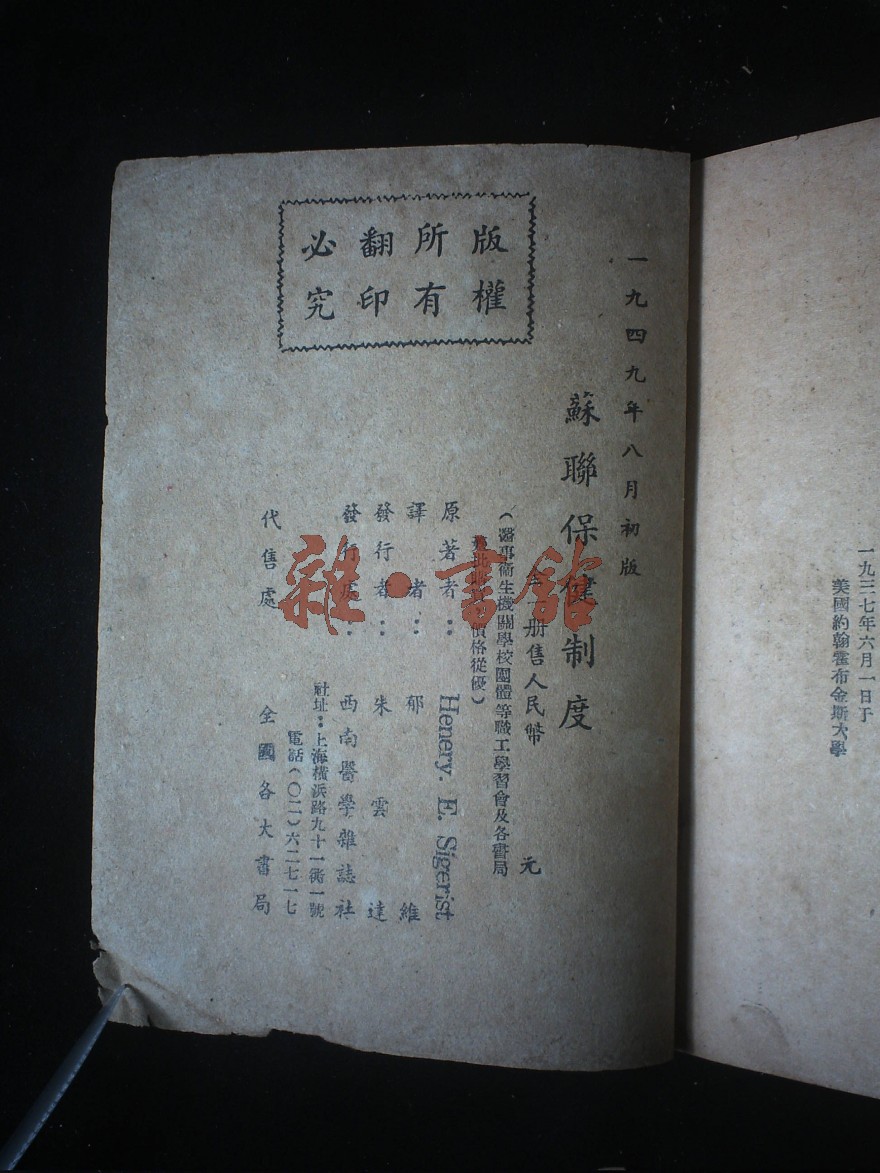 一九三七年六月一日于
美國約翰霍布金斯大學
一九四九年八月初版
蘇聯保健制度
全一册售人民幣 元
（醫事衞生機關學校團體等職工學習會及各書局
價格從優）
原著者：Henery. E. Sigerist
譯者：郁維
發行者：朱雲達
發行處：西南醫學雜誌社
社址：上海橫浜路九十一衖一號
電話（〇二）六二七一七
代售處 全國各大書局
版權
所有
翻印
必究
雜·書館